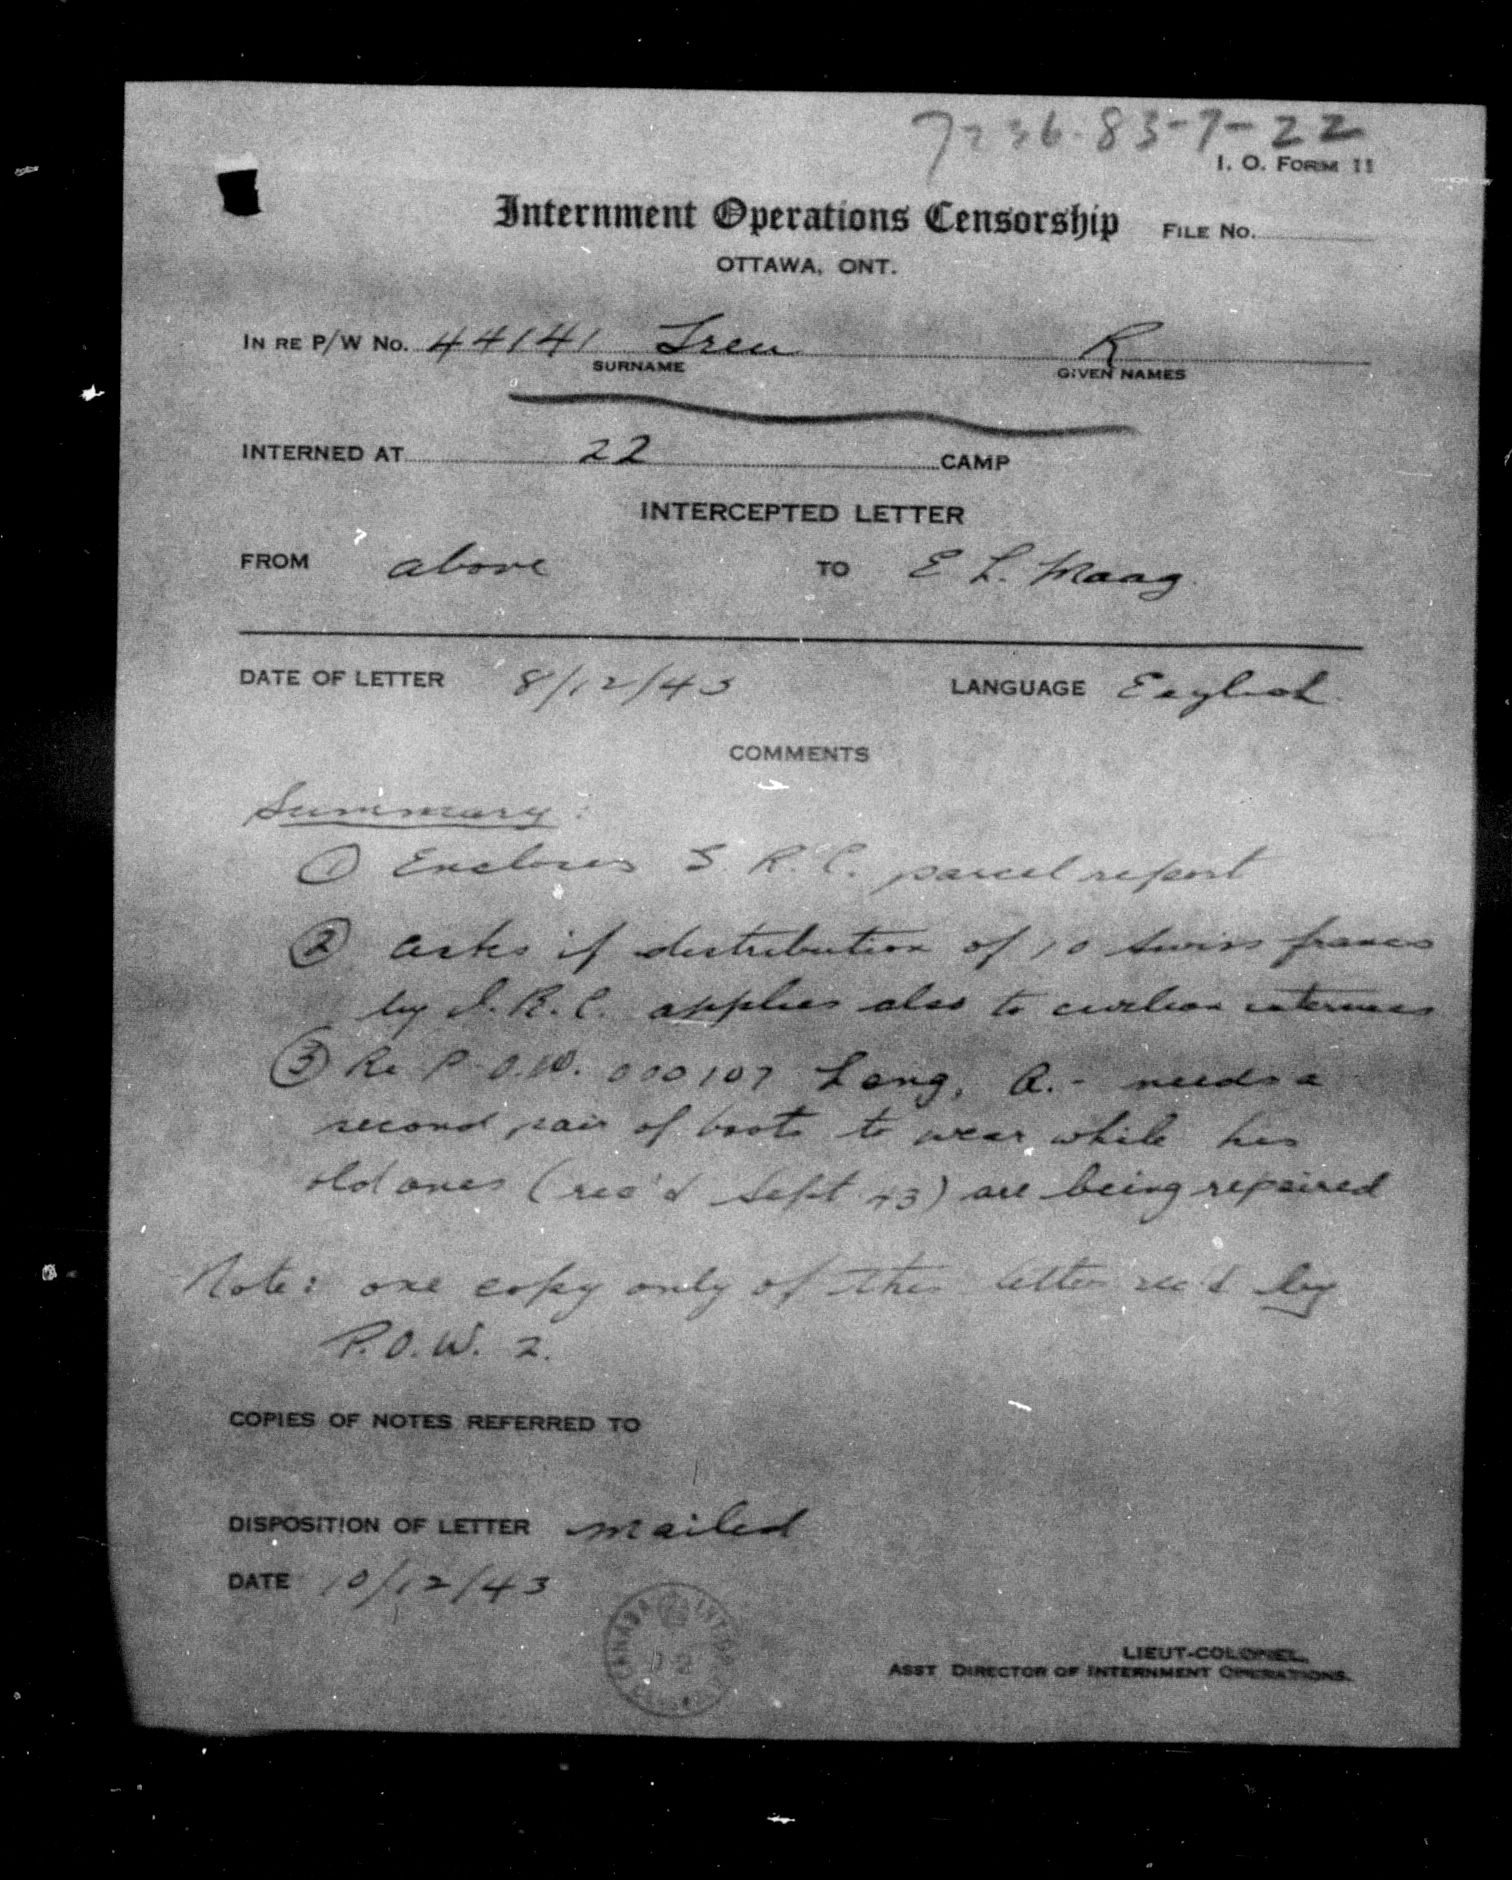 7236-83-7-22
I. O. FORM 11
Internment Operations Censorship FILE No.
OTTAWA, ONT.
IN RE P/W No. 44141 Treu R
SURNAME GIVEN NAMES
INTERNED AT 22 CAMP
INTERCEPTED LETTER
FROM above TO E L. Maag
DATE OF LETTER 8/12/43 LANGUAGE English
COMMENTS
Summary:
① Encloses I. R. C. parcel report
② asks if distribution of 10 Swiss francs
by I.R.C. applies also to civilian internees
③ Re P.O.W. 000107 Lang, A. - needs a
second pair of boots to wear while his
old ones (rec'd Sept 43) are being repaired
Note: one copy only of this letter rec'd by
P.O.W. 2.
COPIES OF NOTES REFERRED TO
DISPOSITION OF LETTER mailed
DATE 10/12/43
CANADA
LIEUT-COLONEL,
ASST DIRECTOR OF INTERNMENT OPERATIONS.